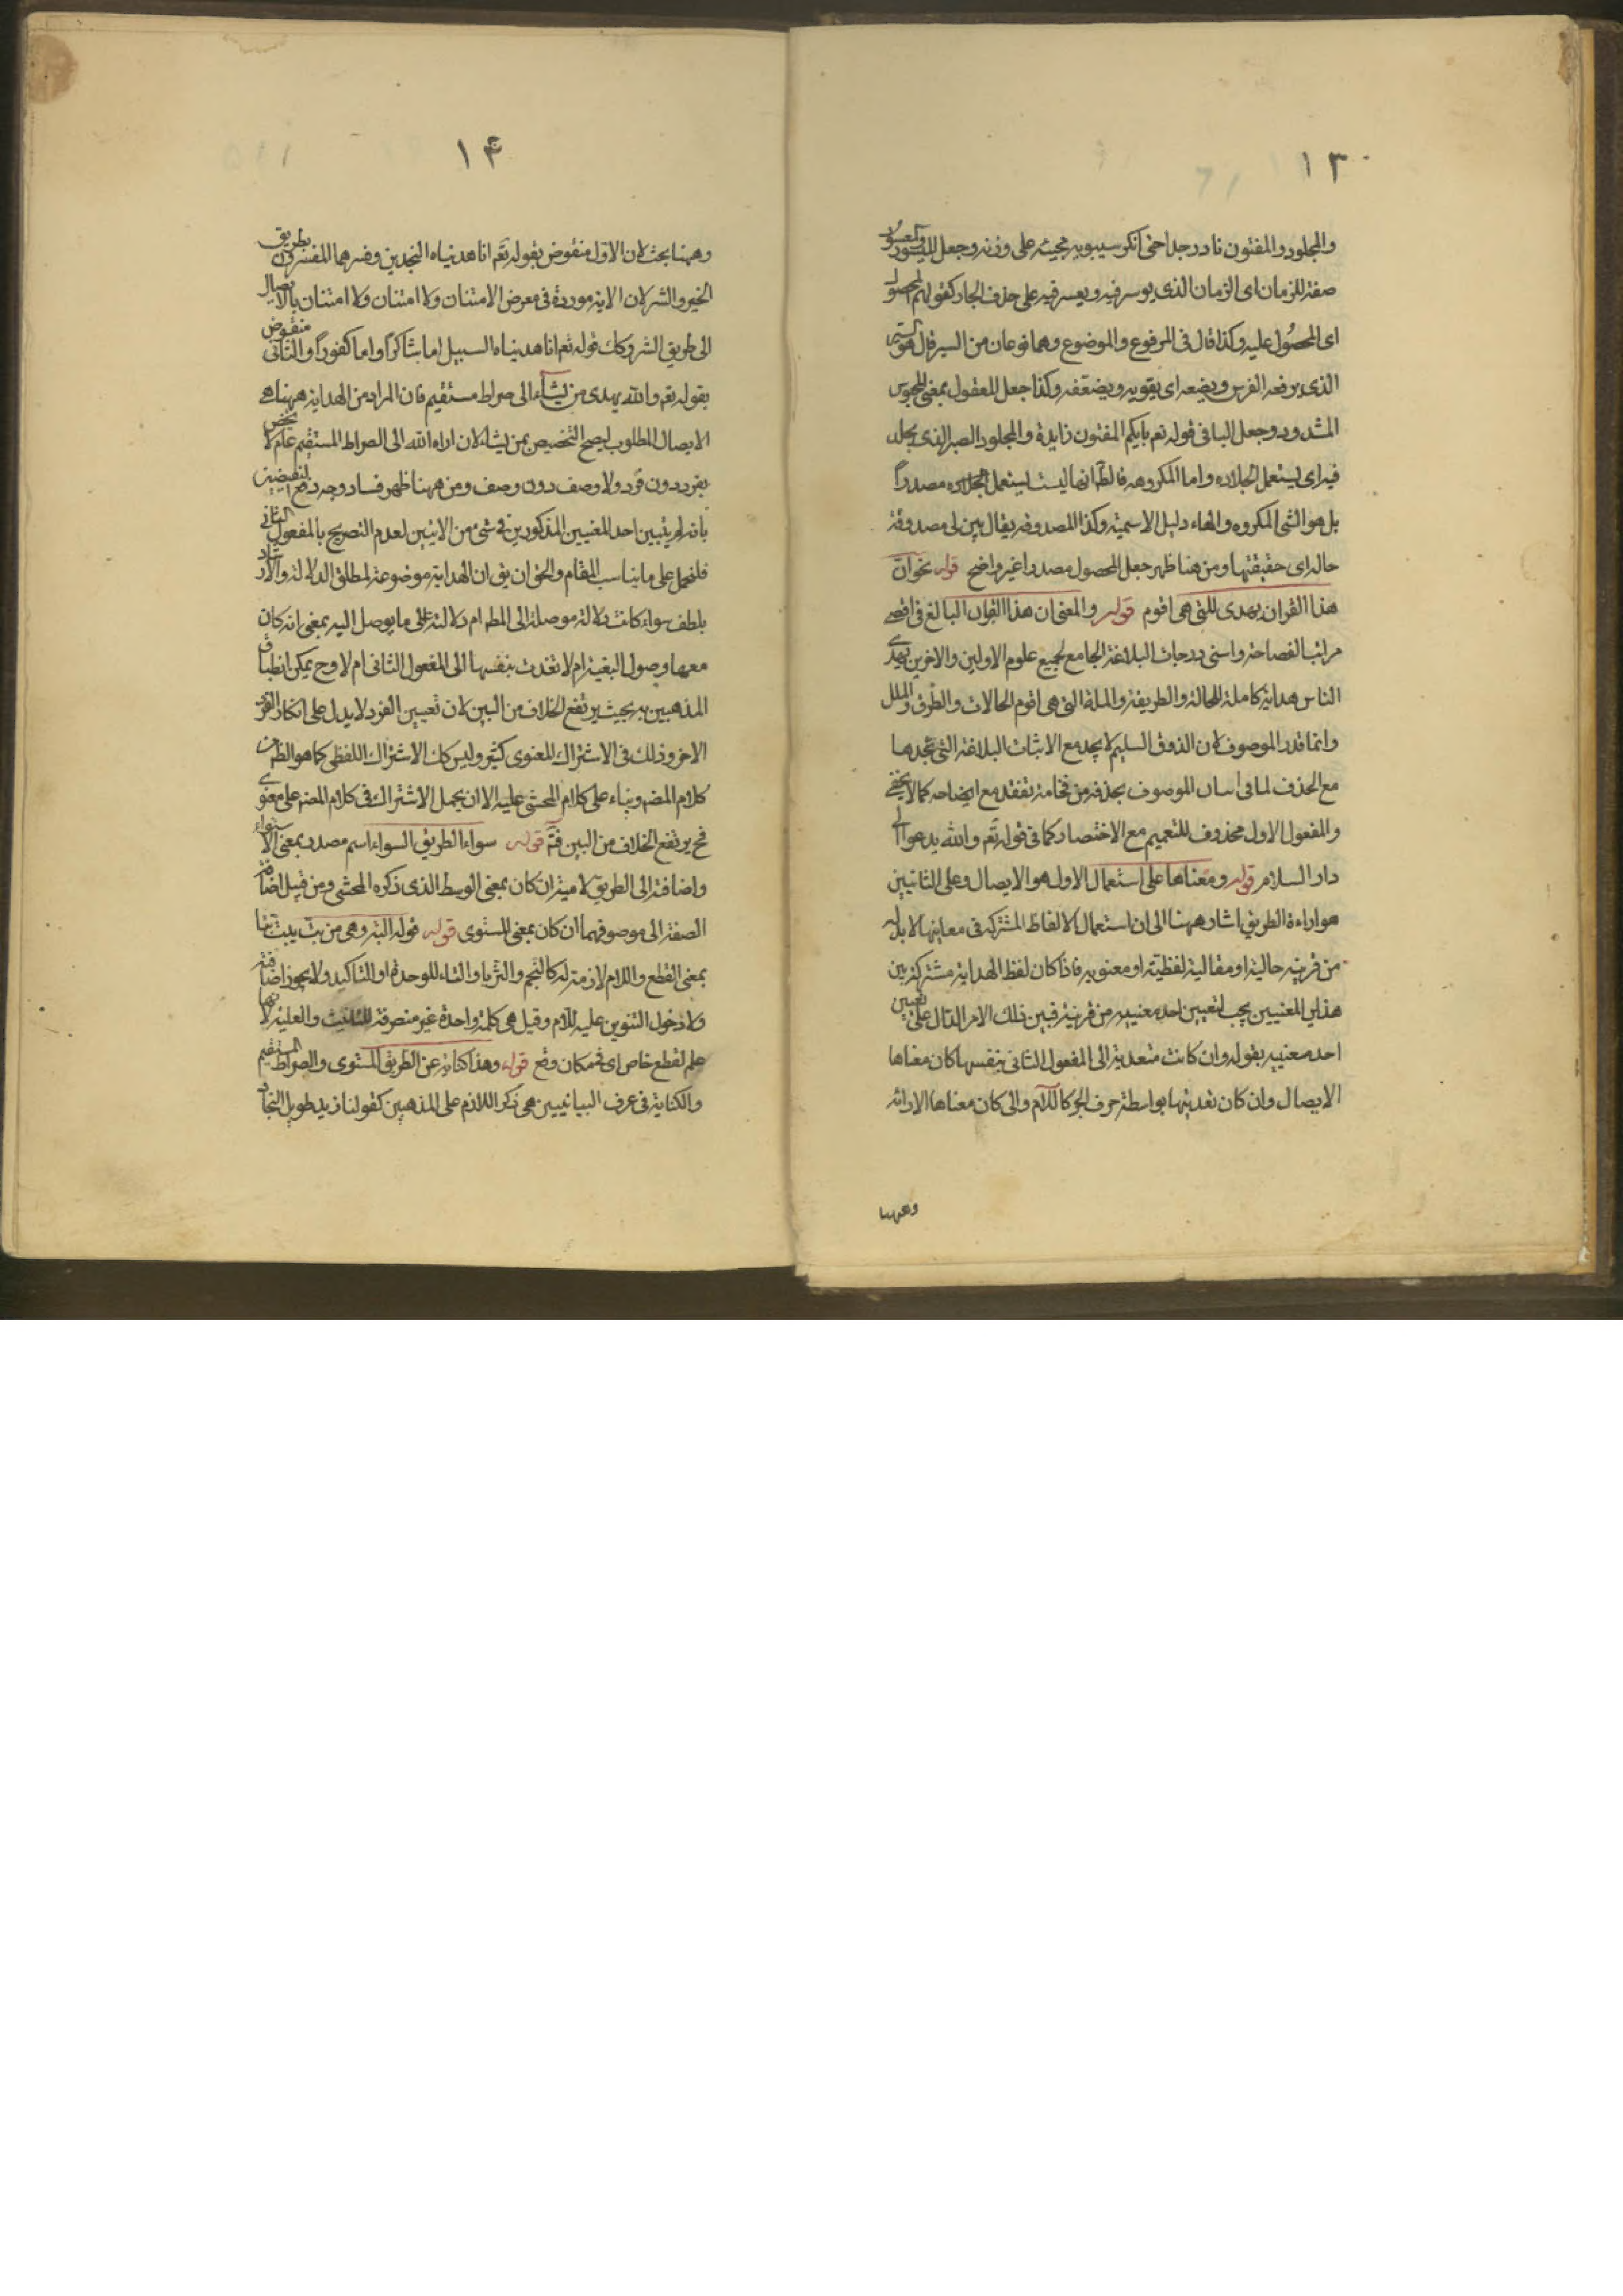 ١٣
والمجلود والمفتون نادر جدا حتى انكر سيبويه مجيئه على وزنه وجعل الميسور والمعسور
صفة للزمان اى الزمان الذى يوسر فيه ويعسر فيه على حذف الجار كقولهم المحصول
اى المحصول عليه وكذا قال فى المرفوع والموضوع وهما نوعان من السير قال هو السير
الذى يرفعه الفرس ويضعه اى يقويه ويضعفه وكذا جعل المعقول بمعنى المحبوس
المشدود وجعل البا فى قوله تعم بايكم المفتون زايدة والمجلود الصبر الذى يجلد
فيه اى يستعمل الجلاده واما المكروهه فالظ انها ليست يستعمل مصدراً
بل هو الشى المكروه والهاء دليل الاسمية وكذا المصدوقه يقال بين لى مصدوقة
حاله اى حقيقتها ومن هنا ظهر جعل المحصول مصدرا غير واضح قوله نحو ان
هذا القران يهدى للتى هى اقوم قوله والمعنى ان هذا القران البالغ فى اقصى
مراتب الفصاحة واسنى درجات البلاغة الجامع لجميع علوم الاولين والاخرين يهدى
الناس هداية كاملة للحالة والطريقة والملة التى هى اقوم الحالات والطرق والملل
وانما قدر الموصوف لان الذوق السليم لا يجد مع الاثبات البلاغة التى تجدها
مع الحذف لما فى الموصوف بحذفه من فخامة تفقد مع ايضاحه كما لا يخفى
والمفعول الاول محذوف للتعميم مع الاختصار كما فى قوله تعم والله يدعوا الى
دار السلام قوله ومعناها على استعمال الاول هو الايصال وعلى الثانيين
هو اراءة الطريق اشار ههنا الى ان استعمال الالفاظ المشتركة فى معانيها لا بد له
من قرينه حالية او مقالية لفظية او معنويه فاذا كان لفظ الهداية مشتركة بين
هذاين المعنيين يجب لتعيين احد معنييه من قرينة فبين ذلك الامر الدال على تعيين
احد معنييه بقوله وان كانت متعدية الى المفعول الثانى بنفسها كان معناها
الايصال وان كان تعديتها بواسطة حرف الجر كاللام والى كان معناها الارائة
وههنا
١٤
وههنا بحث لان الاول منقوض بقوله تعم انا هديناه النجدين وفسرهما المفسرون بطريق
الخير والشر لان الاية موردة فى معرض الامتنان ولا امتنان ولا امتنان بالايصال
الى طريق الشر وكك قوله تعم انا هديناه السبيل اما شاكراً واما كفوراً والثانى منقوض
بقوله تعم والله يهدى من يشاء الى صراط مستقيم فان المراد من الهداية ههنا هى
الايصال المطلوب ليصح التخصيص بمن يشاء لان اراه الله الى الصراط المستقيم عام لا يخص
بفرد دون فرد ولا وصف دون وصف ومن ههنا ظهر فساد وجه دفع النقيضين
بانه لم يتبين احد المعنيين المذكورين فى شى من الايتين لعدم التصريح بالمفعول الثانى
فلنحمل على ما يناسب المقام والحق ان يق ان الهداية موضوعة لمطلق الدلالة والارشاد
بلطف سواء كانت دلالة موصلة الى المط ام دلالة على ما يوصل اليه بمعنى انه كان
معها وصول البغية ام لا تعدت بنفسها الى المفعول الثانى ام لا وح يمكن انطباق
المذهبين به بحيث يرتفع الخلاف من البين لان تعيين الفرد لا يدل على انكار الفرد
الاخر وذلك فى الاشتراك المعنوى كثير وليس كك الاشتراك اللفظى كما هو الظ من
كلام المصه وبناء على كلام المحشى عليه الا ان يحمل الاشتراك فى كلام المصه على معنوى
فح يرتفع الخلاف من البين فتم قوله سواء الطريق السواء اسم مصدر بمعنى الاستواء
واضافة الى الطريق لامية ان كان بمعنى الوسط الذى ذكره المحشى ومن قبيل اضافة
الصفة الى موصوفها ان كان بمعنى المستوى قوله قوله البته وهى من بت يبت بتا
بمعنى القطع واللام لازمة له كالنجم والثريا والتاء للوحدة او التاكيد ولا يجوز اضافته
ولا دخول التنوين عليه للام وقيل هى كلمة واحدة غير منصرفة للتانيث والعلمية لانها
علم لقطع خاص اى فى مكان وقع قوله وهذا كناية عن الطريق المستوى والصراط المستقيم
والكناية فى عرف البيانيين هى ذكر اللازم على المذهبين كقولنا زيد طويل النجاد